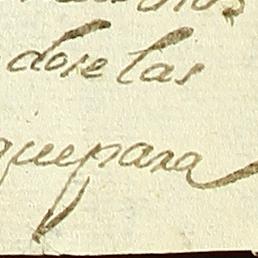 dose las
quepara